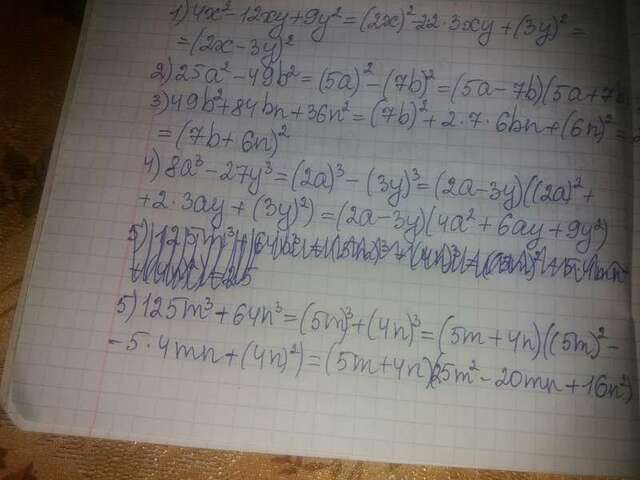 1) 4x² - 12xy + 9y² = (2x)² - 22·3xy + (3y)² =
= (2x - 3y)²
2) 25a² - 49b² = (5a)² - (7b)² = (5a - 7b)(5a + 7b
3) 49b² + 84bn + 36n² = (7b)² + 2·7·6bn + (6n)² =
= (7b + 6n)²
4) 8a³ - 27y³ = (2a)³ - (3y)³ = (2a - 3y)((2a)² +
+ 2·3ay + (3y)²) = (2a - 3y)(4a² + 6ay + 9y²)
5) 125m³ + 64n³ = (5m)³ + (4n)³ = (5m + 4n)((5m)² -
- 5·4mn + (4n)²) = (5m + 4n)(25m² - 20mn + 16n²)